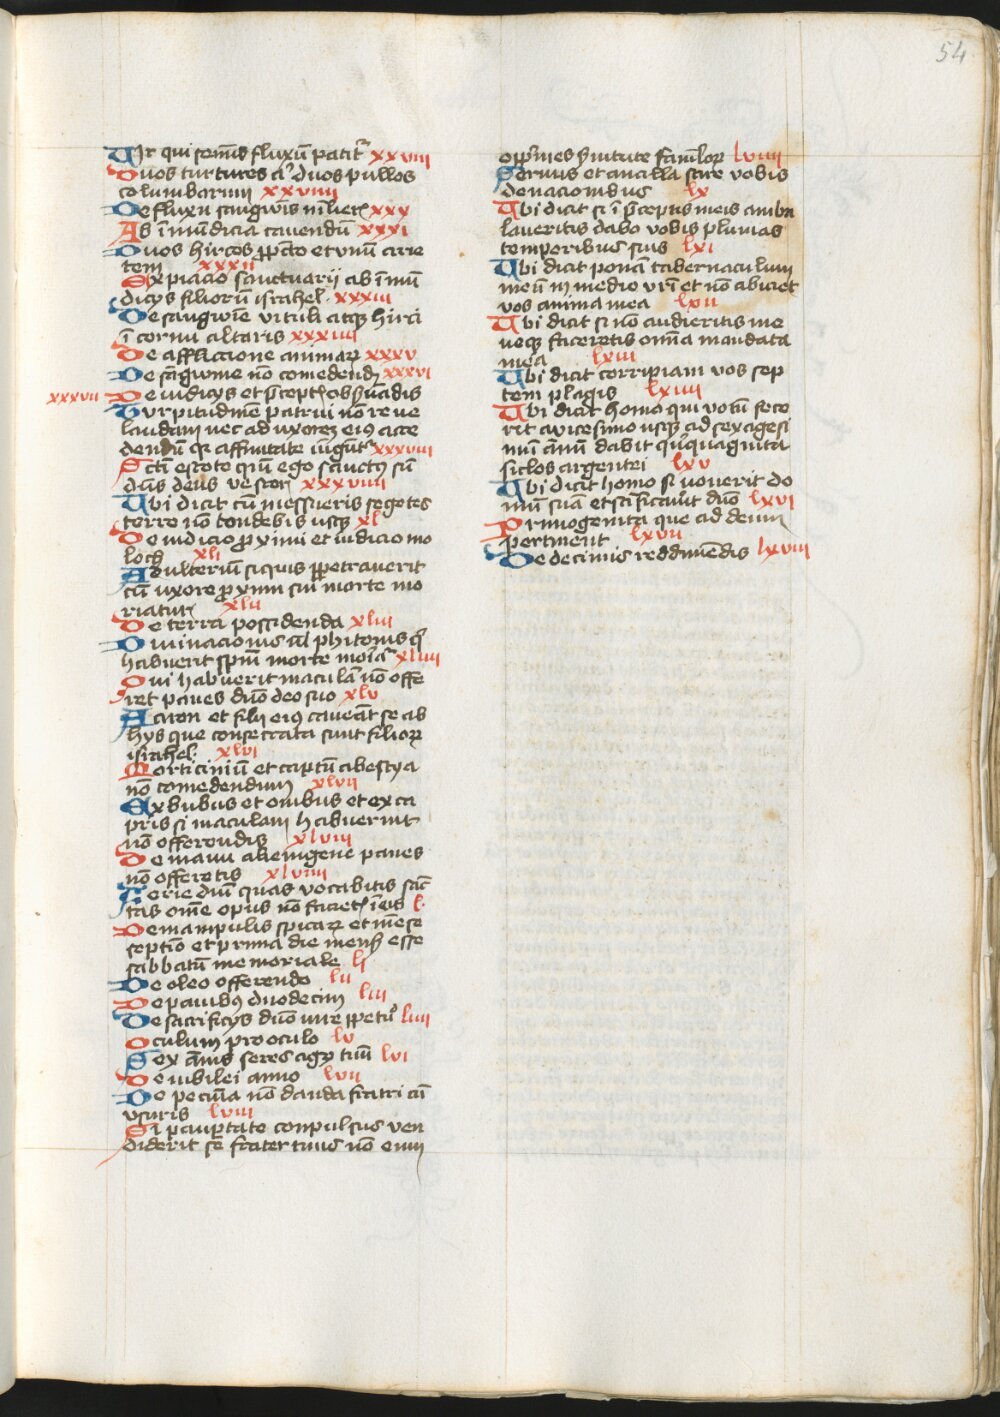 54
Vir qui semīs fluxū patit᷑ xxviii
Duos turtures aut duos pullos
columbarum xxviiii
De fluxu sangwīs mulier xxx
Ab īmūdicia cavendū xxxi
Duos hircos p pctō et vnū ariē
tem xxxii
Expiacio sanctuarij ab īmū
dicijs filiorū israhel xxxiii
De sangwīe vituli atq hirci
ī cornu altaris xxxiiii
De afflictione animar xxxv
De sāgwine nō comedendo xxxvi
xxxvii De iudicijs et p̄cept obs̄uādis
Turpitudinē patrui nō reve
laudam nec ad uxorē eius acce
dendū qr affinitate iūgūt᷑ xxxviii
Scti estote qm̄ ego sanctus sū
dūs deus vester xxxviiii
Ubi dicit cū messueris segetes
terre nō tondebis usq xl
De iudicio proximi et iudicio mo
loch xli
Adulteriū siquis perpetraverit
cū uxore proximi sui morte mo
riatur xlii
De terra possidenda xliii
Divinacionis ul phitonis q
habuerit spm̄ morte moriat᷑ xliiii
Qui habuerit maculā nō offe
ret panes dūo deo suo xlv
Aaron et filij eius caveāt se ab
hys que consecrata sunt filior
israhel xlvi
Morticiniū et captū abestya
nō comedendum xlvii
Ex bubus et ovibus et ex ca
pris si maculam habuerint
nō offerendis xlviii
De manu alienigene panes
nō offeretis xlviiii
Ferie dūi quas vocabitis sāc
tas omē opus nō faciet in eis l
De manipulis spicar et mēse
septīo et prima die mens esse
sabbatū memoriale li
De oleo offerendo lii
De panibus duodecim liii
De sacrificijs dūo iure ppetu liiii
Oculum pro oculo lv
Sex ānis seres agrū tuū lvi
De iubilei anno lvii
De pecūia nō danda fratri cū
usuris lviii
Si paupertate conpulsus ven
diderit se frater tuus nō eum
opp̄mes s̄vitute famlor lviiii
Servus et ancilla sint vobis
de nacionibus lx
Ubi dicit si ī p̄ceptis meis ambu
laveritis dabo vobis pluvias
temporibus suis lxi
Ubi dicit ponā tabernaculum
meū in medio vr̄i et nō abiciet
vos anima mea lxii
Ubi dicit si nō audieritis me
neq feceretis omīa mandata
mea lxiii
Ubi dicit corripiam vos sep
tem plagis lxiiii
Ubi dicit homo qui votū fece
rit a vicesimo usq ad sexagesi
mū ānū dabit quīquaginta
siclos argentei lxv
Ubi dicit homo si voverit do
mū suā et sc̄ificaverit dūo lxvi
Primogenita que ad deum
pertinent lxvii
De decimis reddimēdis lxviii